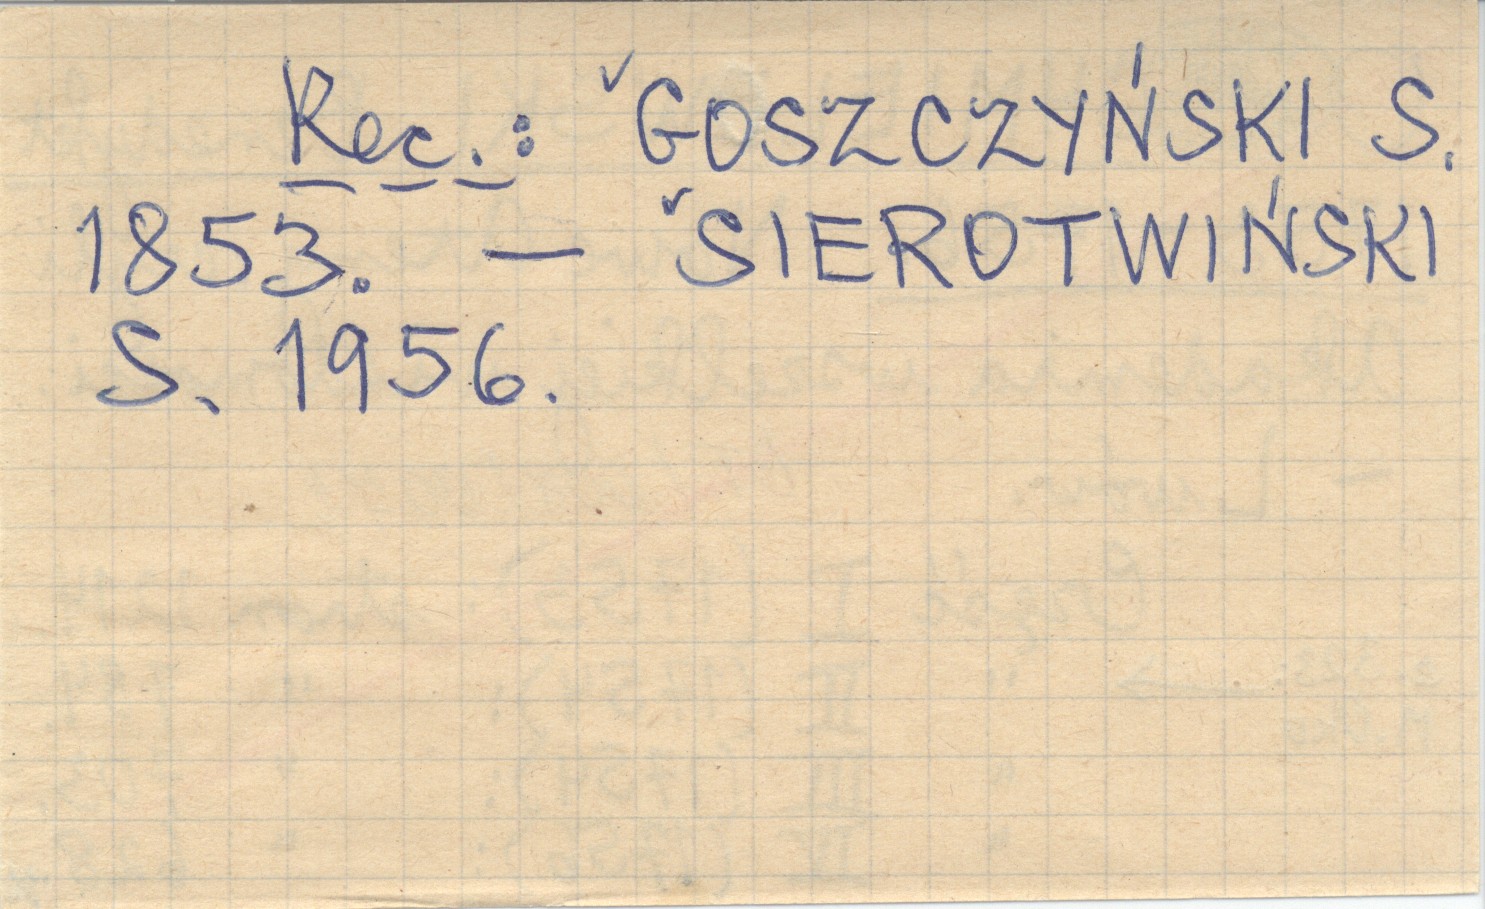 Rec.: ✓GOSZCZYŃSKI S.
1853. — ✓SIEROTWIŃSKI
S. 1956.